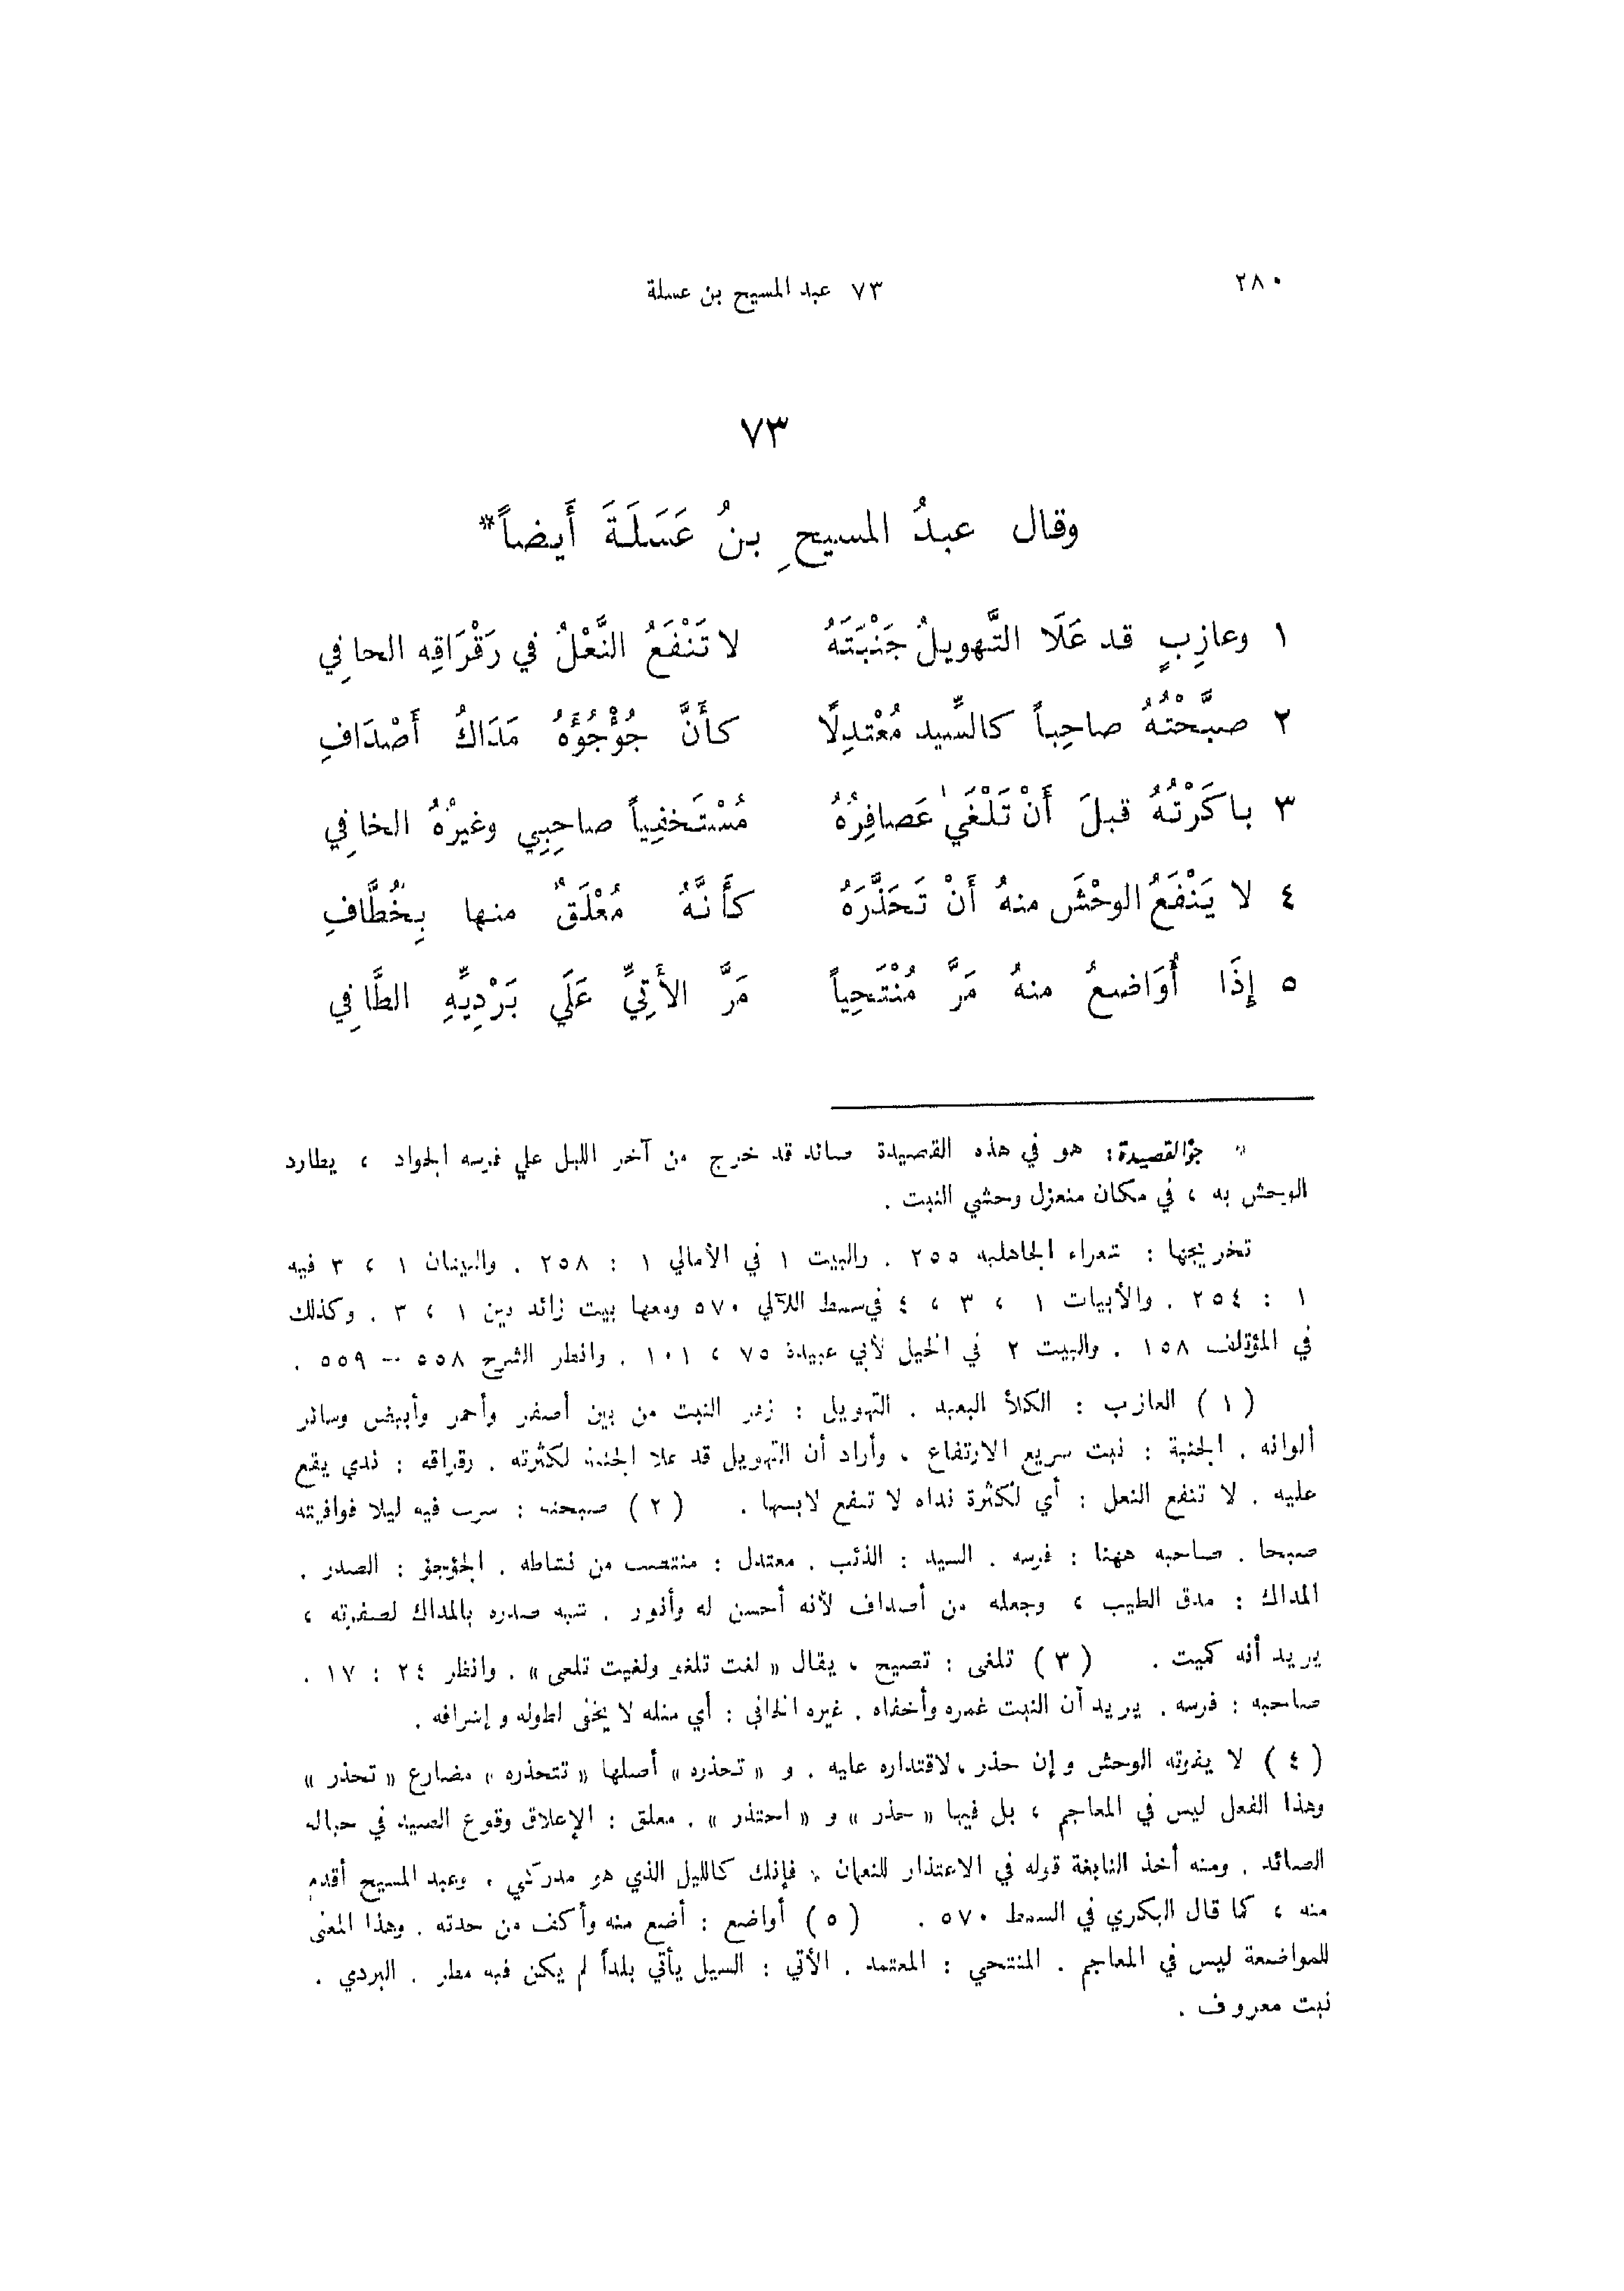 ٢٨٠
٧٣ عبد المسيح بن عسلة
٧٣
وقال عبدُ المسيحِ بنُ عَسَلَةَ أَيضاً*
١ وعازِبٍ قد عَلَا التَّهويلُ جَنْبَتَهُ لا تَنْفَعُ النَّعْلُ في رَقْرَاقِه الحافِي
٢ صبَّحْتُهُ صاحِباً كالسِّيد مُعْتدِلًا كأَنَّ جُؤْجُؤَهُ مَدَاكُ أَصْدَافِ
٣ باكَرْتُهُ قبلَ أَنْ تَلْغَىٰ عَصافِرُهُ مُسْتَخفِياً صاحِبِي وغيرُهُ الخافِي
٤ لا يَنْفَعُ الوحْشَ منهُ أَنْ تَحَذَّرَهُ كأَنَّهُ مُعْلَقٌ منها بِخُطَّافِ
٥ إِذَا أُوَاضعُ منهُ مَرَّ مُنْتَحِياً مَرَّ الأَتِيِّ عَلَي بَرْدِيِّهِ الطَّافِي
* جوّ القصيدة: هو في هذه القصيدة صائد قد خرج من آخر الليل علي فرسه الجواد ، يطارد
الوحش به ، في مكان منعزل وحشي النبت .
تخريجها : شعراء الجاهلية ٢٥٥ . والبيت ١ في الأمالي ١ : ٢٥٨ . والبيتان ١ ، ٣ فيه
١ : ٢٥٤ . والأبيات ١ ، ٣ ، ٤ في سمط اللآلي ٥٧٠ ومعها بيت زائد بين ١ ، ٣ . وكذلك
في المؤتلف ١٥٨ . والبيت ٢ في الخيل لأبي عبيدة ٧٥ ، ١٠١ . وانظر الشرح ٥٥٨ – ٥٥٩ .
( ١ ) العازب : الكلأ البعيد . التهويل : زهر النبت من بين أصفر وأحمر وأبيض وسائر
ألوانه . الجنبة : نبت سريع الارتفاع ، وأراد أن التهويل قد علا الجنبة لكثرته . رقراقه : ندي يقع
عليه . لا تنفع النعل : أي لكثرة نداه لا تنفع لابسها . ( ٢ ) صبحته : سرت فيه ليلا فوافيته
صبحا . صاحبه ههنا : فرسه . السيد : الذئب . معتدل : منتصب من نشاطه . الجؤجؤ : الصدر .
المداك : مدق الطيب ، وجعله من أصداف لأنه أحسن له وأنور . شبه صدره بالمداك لصفرته ،
يريد أنه كميت . ( ٣ ) تلغى : تصيح ، يقال « لغت تلغو ولغيت تلغى » . وانظر ٢٤ : ١٧ .
صاحبه : فرسه . يريد أن النبت غمره وأخفاه . غيره الخافي : أي مثله لا يخفى لطوله و إشرافه .
( ٤ ) لا يفوته الوحش و إن حذر ، لاقتداره عليه . و « تحذره » أصلها « تتحذره » مضارع « تحذر »
وهذا الفعل ليس في المعاجم ، بل فيها « حذر » و « احتذر » . معلق : الإعلاق وقوع الصيد في حبالة
الصائد . ومنه أخذ النابغة قوله في الاعتذار للنعمان : فإنك كالليل الذي هو مدركي ، وعبد المسيح أقدم
منه ، كما قال البكري في السمط ٥٧٠ . ( ٥ ) أواضع : أضع منه وأكف من حدته . وهذا المعنى
للمواضعة ليس في المعاجم . المنتحي : المعتمد . الأتي : السيل يأتي بلداً لم يكن فيه مطر . البردي .
نبت معروف .